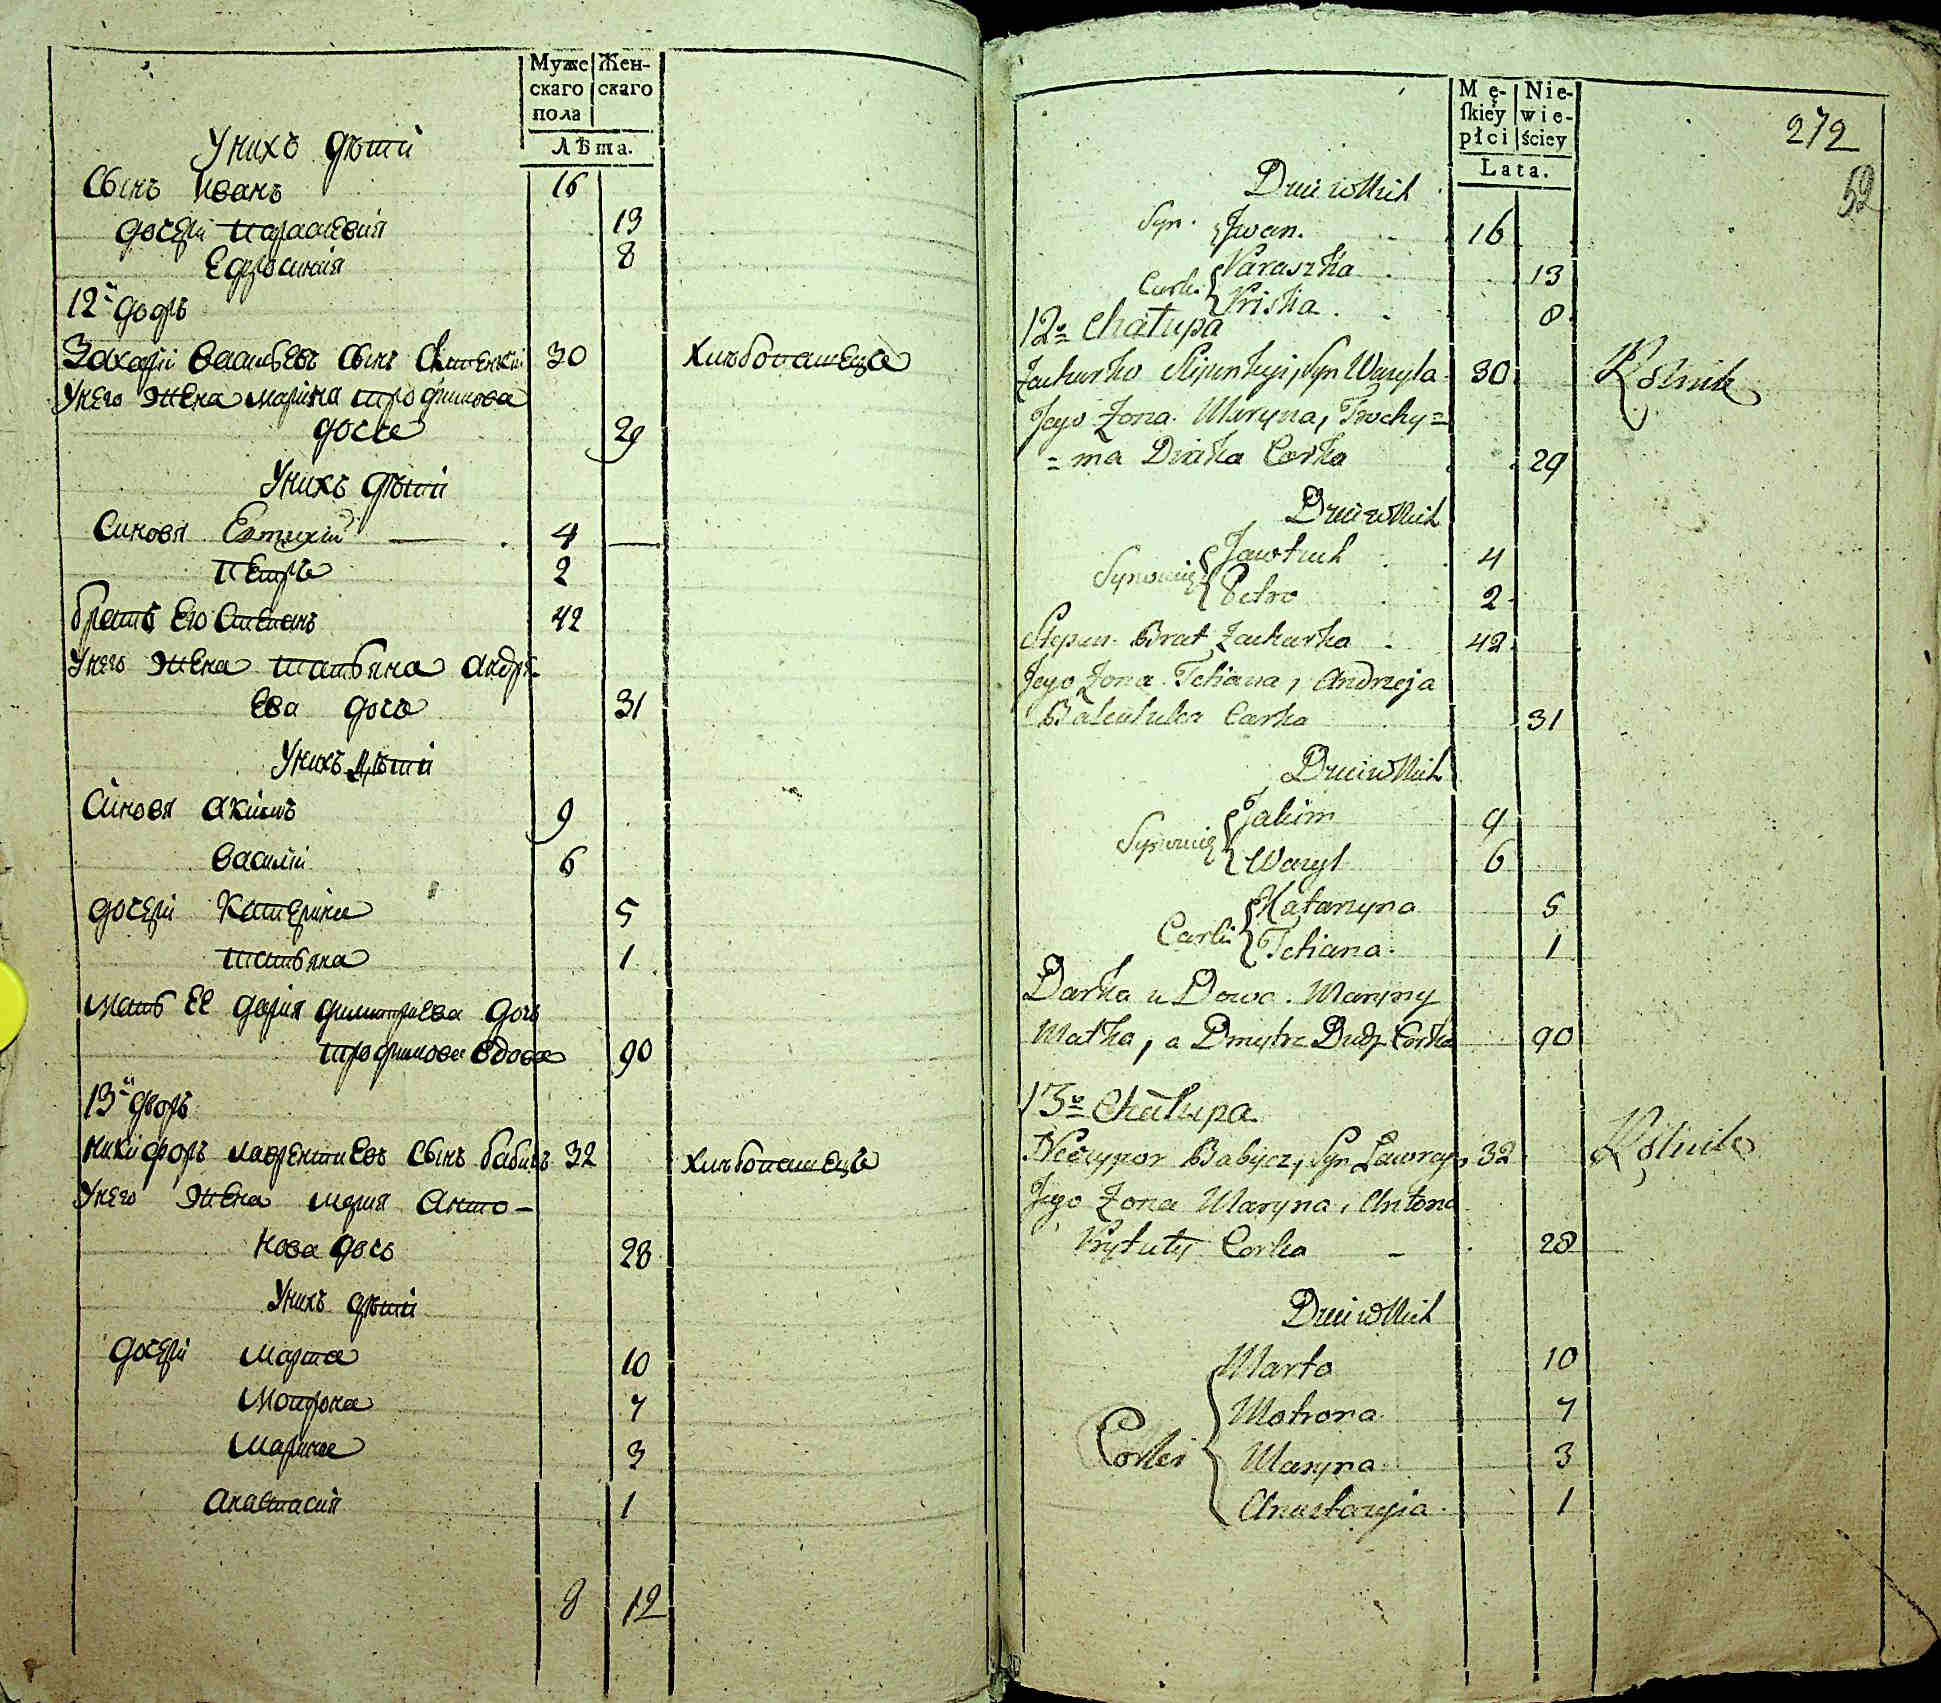 Муже
скаго
пола
Жен-
скаго
Лѣта.
Унихъ дѣти
Сынъ Иванъ 16
дочери Параскевия 13
Ефросиния 8
12й дворъ
Захарий Васильевъ сынъ 30 хлѣбопашецъ
Унего жена марина трофимова
дочь 29
Унихъ дѣти
Синовя Евтихий 4
Петръ 2
братъ Его Степанъ 42
Унего жена татьяна андре
ева дочь 31
Унихъ дѣти
Синовя акимъ 9
Василий 6
дочери Катерина 5
татьяна 1
мать Ее дария димитриева дочь
трофимова вдова 90
13й дворъ
никифоръ лаврентиевъ сынъ бабичъ 32 хлѣбопашецъ
Унего жена мария анто-
нова дочь 28
Унихъ дѣти
дочери марта 10
мотрона 7
марина 3
анастасия 1
8 12
Mę-
ſkiéy
płci
Nie-
wie-
ściey
Lata.
272
52
Dzieci w Nich
Syn Jwan. 16
Corki Paraszka 13
Priska 8
12o Chałupa
Zacharko Syn Wasyla 30 Rolnik
Jego Zona Maryna, Trochy=
=ma Diaka Corka 29
Dzieci w Nich
Synowie Jawtuch 4
Petro 2
Stepan Brat Zacharka 42
Jego Zona Tetiana, Andrzeja
Corka 31
Dzieci w Nich
Synowie Jakim 9
Wasyl 6
Corki Katarzyna 5
Tetiana 1
Darka Wdowa Maryny
Matka, a Dmytra Corka 90
13o Chałupa
Neczypor Babycz, Syn 32 Rolnik
Jego Zona Maryna, Antona
Prytuły Corka 28
Dzieci w Nich
Corki Marta 10
Motrona 7
Maryna 3
Anastazyia 1